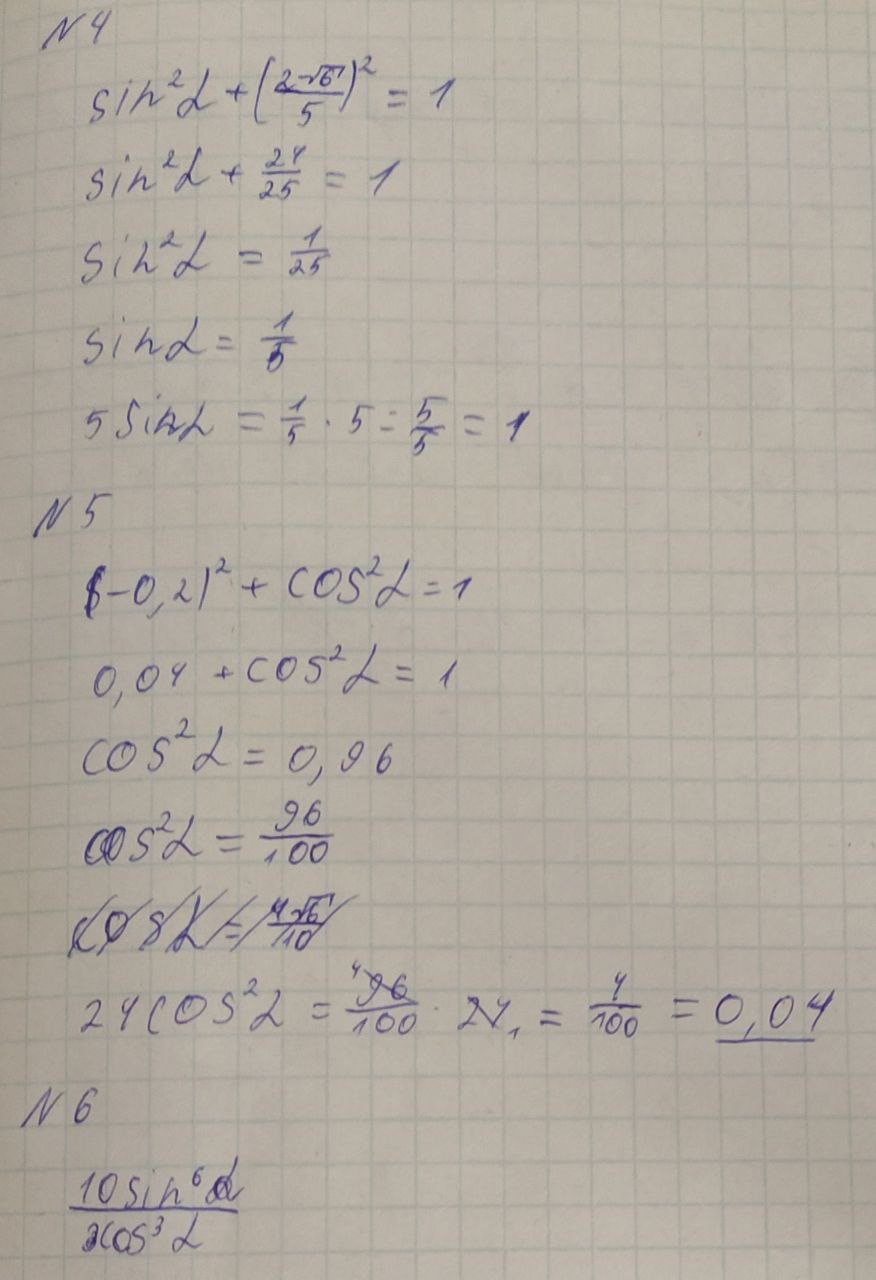 N 4
sin²α + (2√6/5)² = 1
sin²α + 24/25 = 1
sin²α = 1/25
sinα = 1/5
5 sinα = 1/5 · 5 = 5/5 = 1
N 5
(-0,2)² + cos²α = 1
0,04 + cos²α = 1
cos²α = 0,96
cos²α = 96/100
cosα = 4√6/10
24cos²α = 96/100 · 24 = 4/100 = 0,04
N 6
10sin⁶α/3cos³α